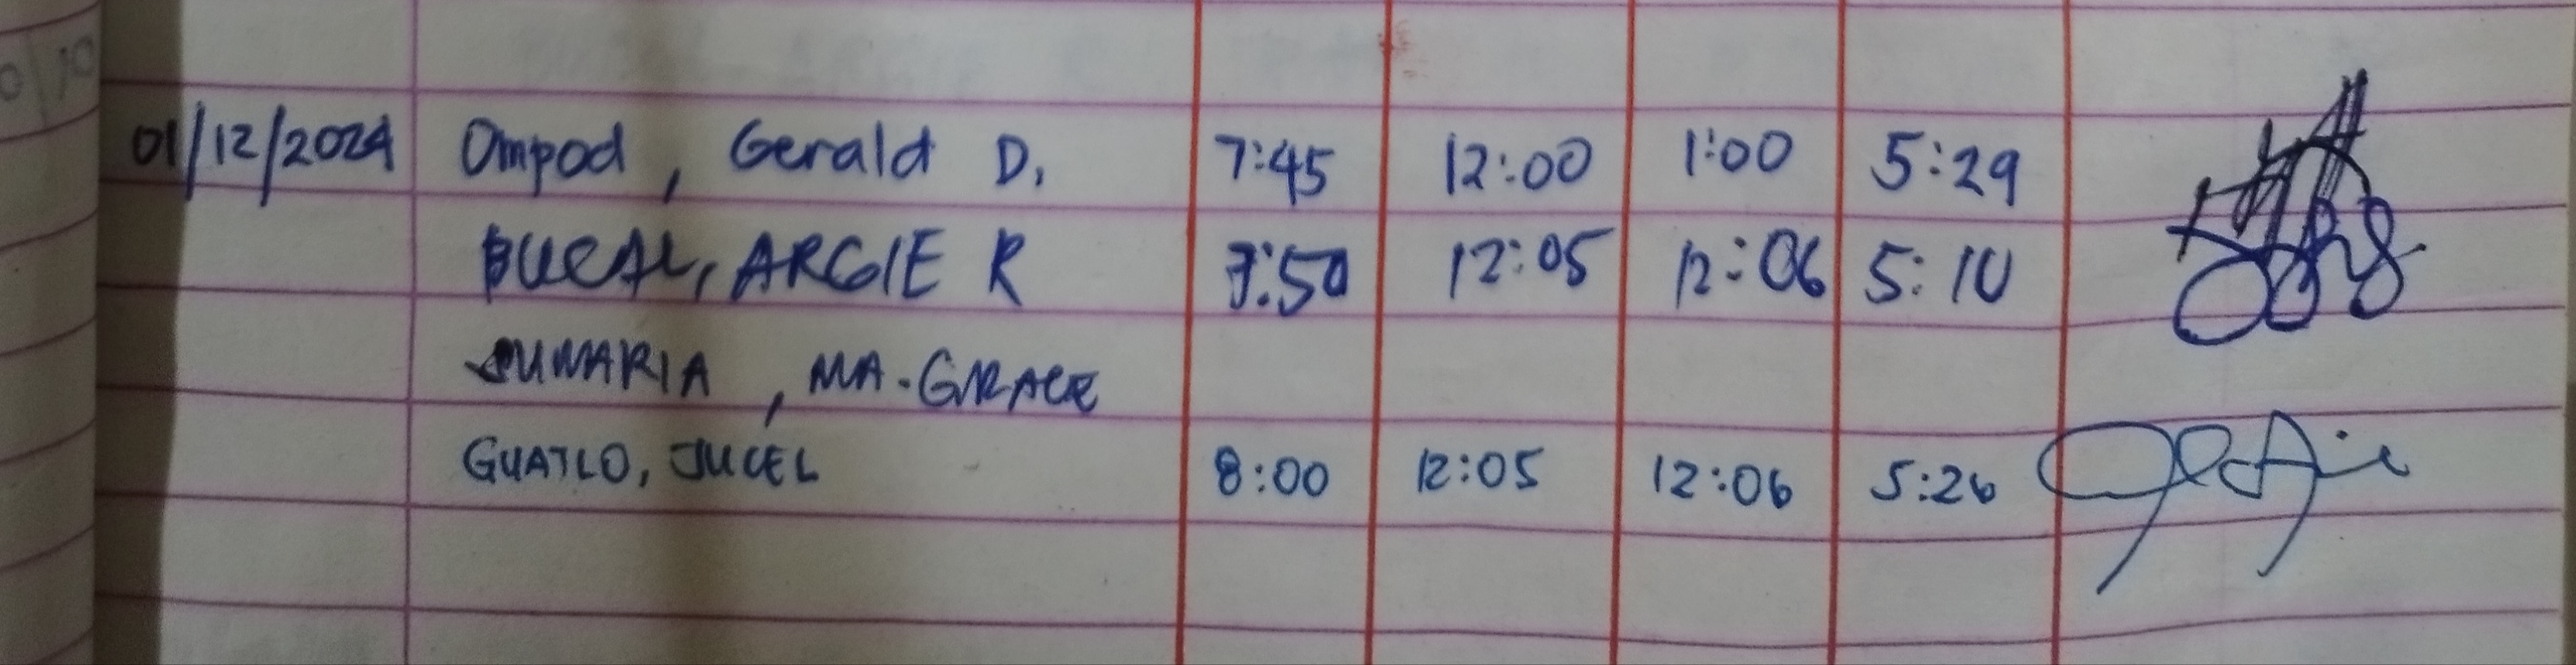 01/12/2024 Ompod, Gerald D. 7:45 12:00 1:00 5:29
BUCAL, ARGIE R 7:50 12:05 12:06 5:10
SUMARIA, MA. GRACE
GUATLO, JUCEL 8:00 12:05 12:06 5:26